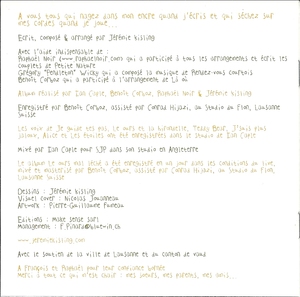 A vous tous qui nagez dans mon encre quand j'écris et qui séchez sur
mes cordes quand je joue...
Ecrit, composé & arrangé par Jérémie Kisling
Avec l'aide indispensable de :
Raphaël Noir (www.raphaelnoir.com) qui a participé à tous les arrangements et écrit les
couplets de Petite Nature
Grégory "Penaleton" Wicky qui a composé la musique de Rendez-vous courtois
Benoît Corboz qui a participé à l'arrangement de Là où
Album réalisé par Ian Caple, Benoît Corboz, Raphaël Noir & Jérémie Kisling
Enregistré par Benoît Corboz, assisté par Conrad Hijazi, au Studio du Flon, Lausanne
Suisse
Les voix de Je guide tes pas, Le ours et la hirondelle, Teddy Bear, J'suis pas
jaloux, Alice et Les fraises ont été enregistrées dans le studio de Ian Caple
Mixé par Ian Caple pour SJP dans son studio en Angleterre
été enregistré en un jour dans les conditions du live,
mixé et masterisé par Benoît Corboz, assisté par Conrad Hijazi, au Studio du Flon,
Lausanne Suisse
Dessins : Jérémie Kisling
Visuel cover : Nicolas Jouanneau
Artwork : Pierre-Guillaume Puneau
Editions : make sense sarl
Management : F.Pinard@bluewin.ch
www.jeremiekisling.com
Avec le soutien de la ville de Lausanne et du canton de vaud
A François et Raphaël pour leur confiance
Merci à tout ce qui m'est cher : mes sœurs, mes parents, mes amis...